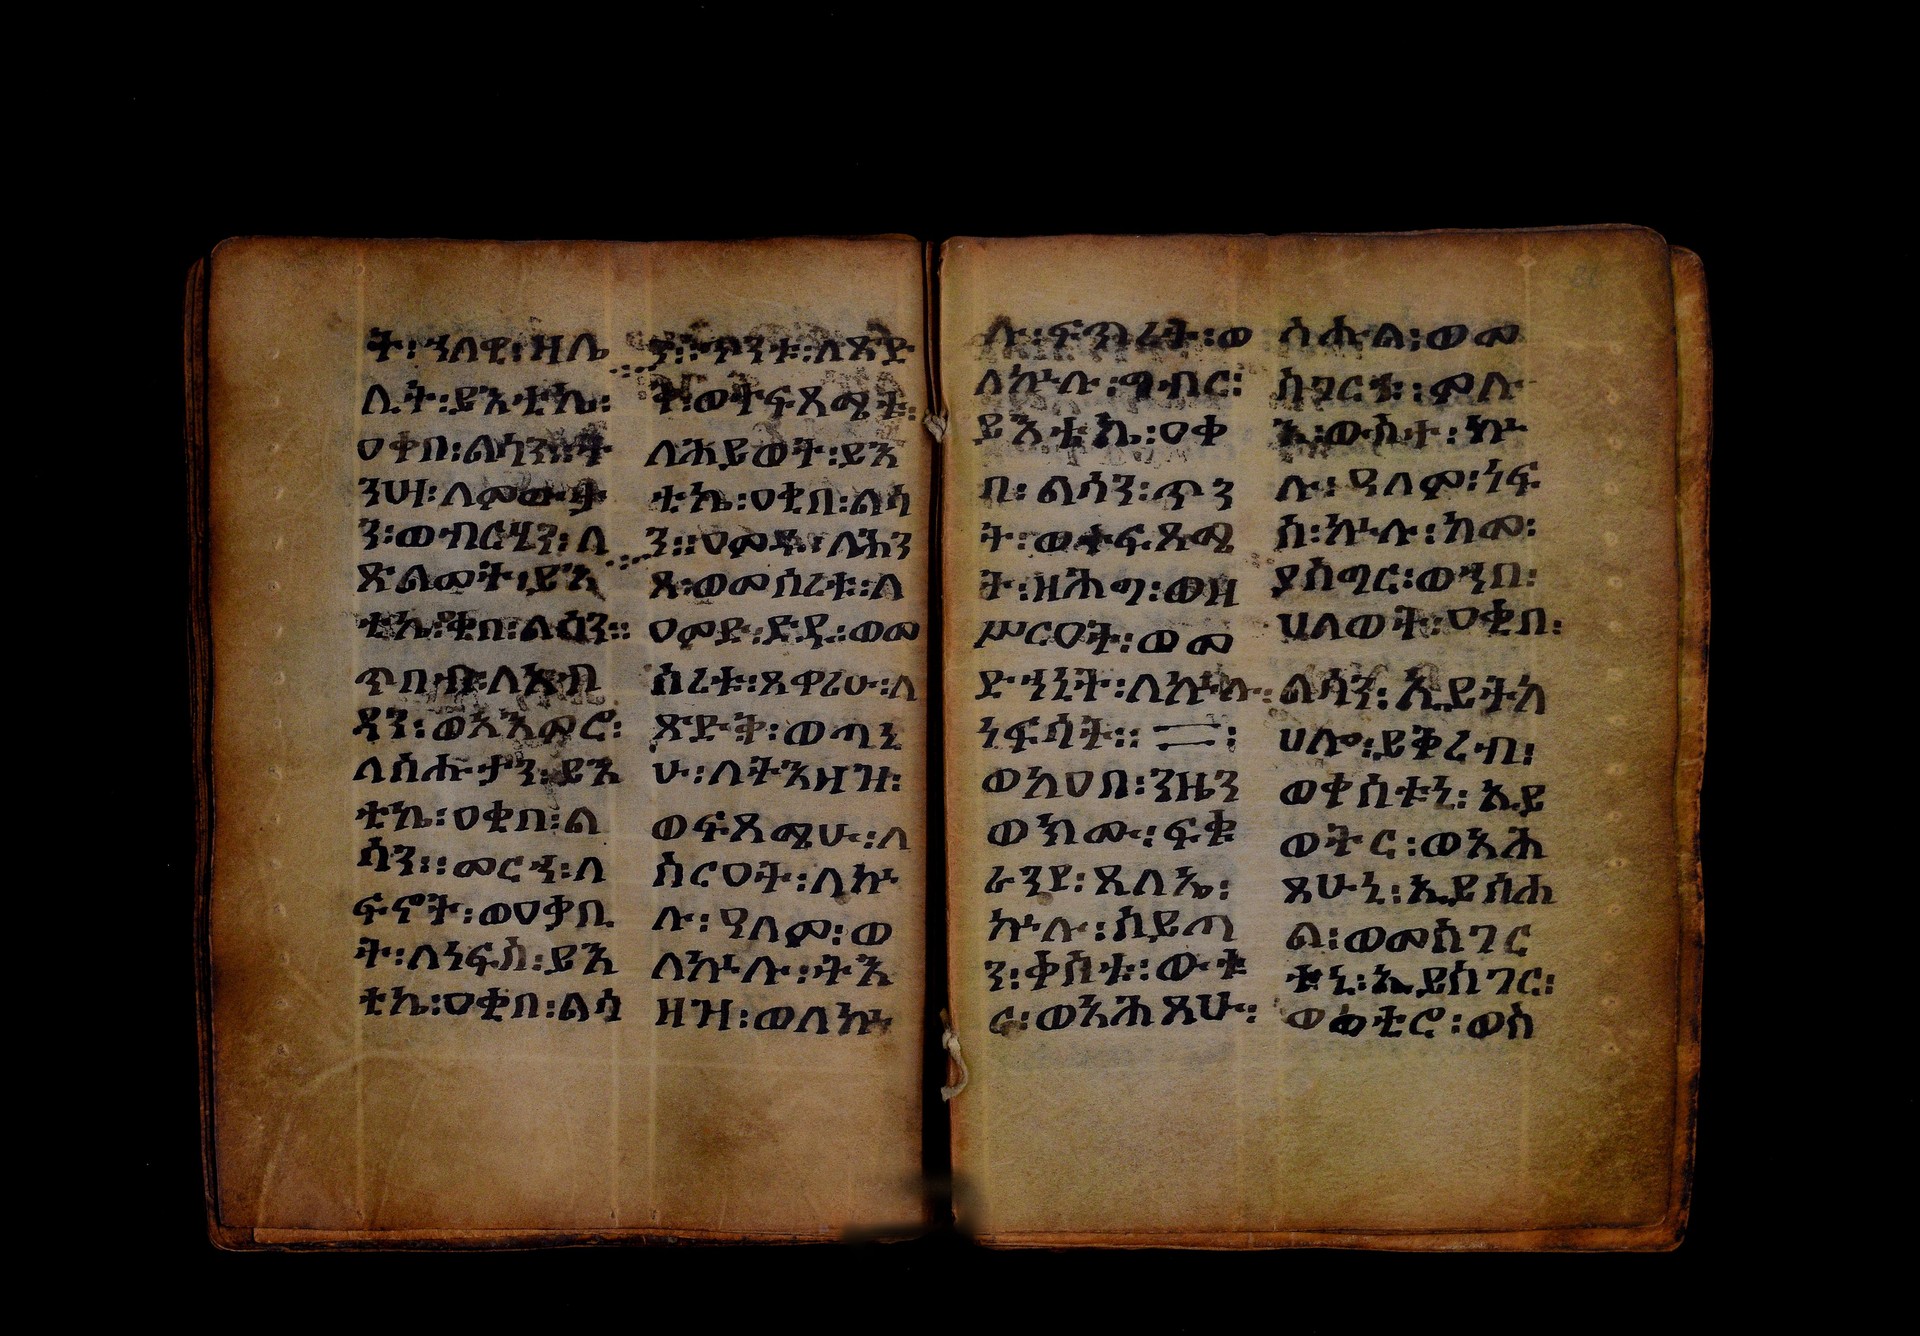 ት፡ ኀለዊ፡ ዘሌ
ሊት፡ ይእቲኬ፡
ዐቀበ፡ ልሳን፡ ት
ንህ፡ ለመውት
ን፡ ወብርሃን፡ ለ
ጽልመት፡ ይእ
ቲኬ፡ ቀበ፡ ልሳን።
ጥበብ፡ ለአብ
ዳን፡ ወአእምሮ፡
ለስሑታን፡ ይእ
ቲኬ፡ ዐቂበ፡ ል
ሳን። መርኅ፡ ለ
ፍኖት፡ ወዐቃቢ
ት፡ ለነፍስ፡ ይእ
ቲኬ፡ ዐቂበ፡ ልሳ
ጥንቱ፡ ለጽድ
ቅ፡ ወተፍጻሜቱ፡
ለሕይወት፡ ይእ
ቲኬ፡ ዐቂበ፡ ልሳ
ን። ዐምዱ፡ ለሕን
ጻ፡ ወመሰረቱ፡ ለ
ዐምድ፡ ድዳ፡ ወመ
ሰረቱ፡ ጸዋሪሁ፡ ለ
ጽድቅ፡ ወጣኒ
ሁ፡ ለትእዛዝ፡
ወፍጻሜሁ፡ ለ
ስርዐት፡ ለኵ
ሉ፡ ዓለም፡ ወ
ለኵሉ፡ ትእ
ዘዝ፡ ወለኵ
ሉ፡ ፍጥረት፡ ወ
ለኵሉ፡ ግብር፡
ይእቲኬ፡ ዐቀ
በ፡ ልሳን፡ ጥን
ት፡ ወተፍጻሜ
ት፡ ዘሕግ፡ ወዘ
ሥርዐት፡ ወመ
ድኀኒት፡ ለኵሉ፡
ነፍሳት።
ወአዐበ፡ ንዜን
ወክሙ፡ ፍቁ
ራንየ፡ ጸለኤ፡
ኵሉ፡ ሰይጣ
ን፡ ቀስቱ፡ ውቱ
ር፡ ወአሕጻሁ፡
ስሑል፡ ወመ
ስገርቱ፡ ምሉ
እ፡ ውስተ፡ ኵ
ሉ፡ ዓለም፡ ነፍ
ሰ፡ ኵሉ፡ ከመ፡
ያስግር፡ ወኀበ፡
ሀለወት፡ ዐቂበ፡
ልሳን፡ ኢይትከ
ሀሎ፡ ይቅረብ፡
ወቀስቱኒ፡ ኢይ
ወትር፡ ወአሕ
ጻሁኒ፡ ኢይስሕ
ል፡ ወመስገር
ቱኒ፡ ኢይሰገር፡
ወወቲሮ፡ ወስ